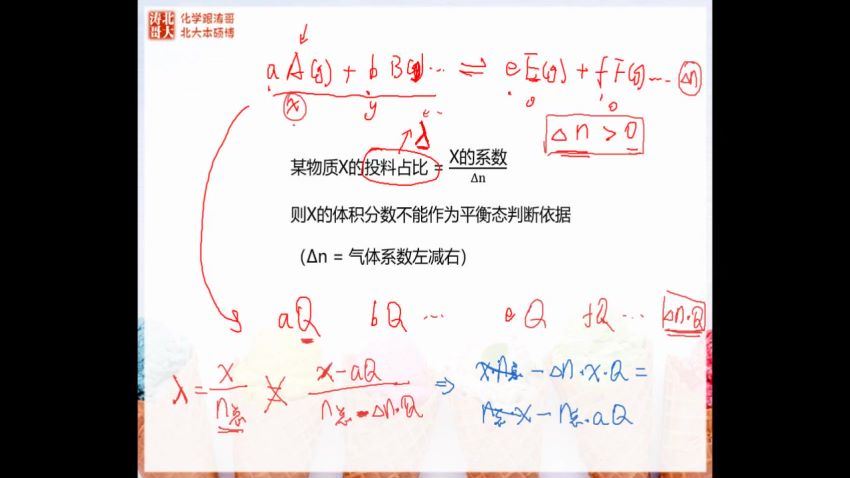 北大涛哥
化学跟涛哥
北大本硕博
a A(g) + b B(g) ... ⇌ e E(g) + f F(g) ... Δn
x y 0 0
Δn > 0
λ
某物质X的投料占比 = X的系数/Δn
则X的体积分数不能作为平衡态判断依据
（Δn = 气体系数左减右）
aQ bQ ... eQ fQ ... Δn·Q
λ = x/n总 = (x-aQ)/(n总-Δn·Q) ⇒ x·n总 - Δn·x·Q =
n总·x - n总·aQ